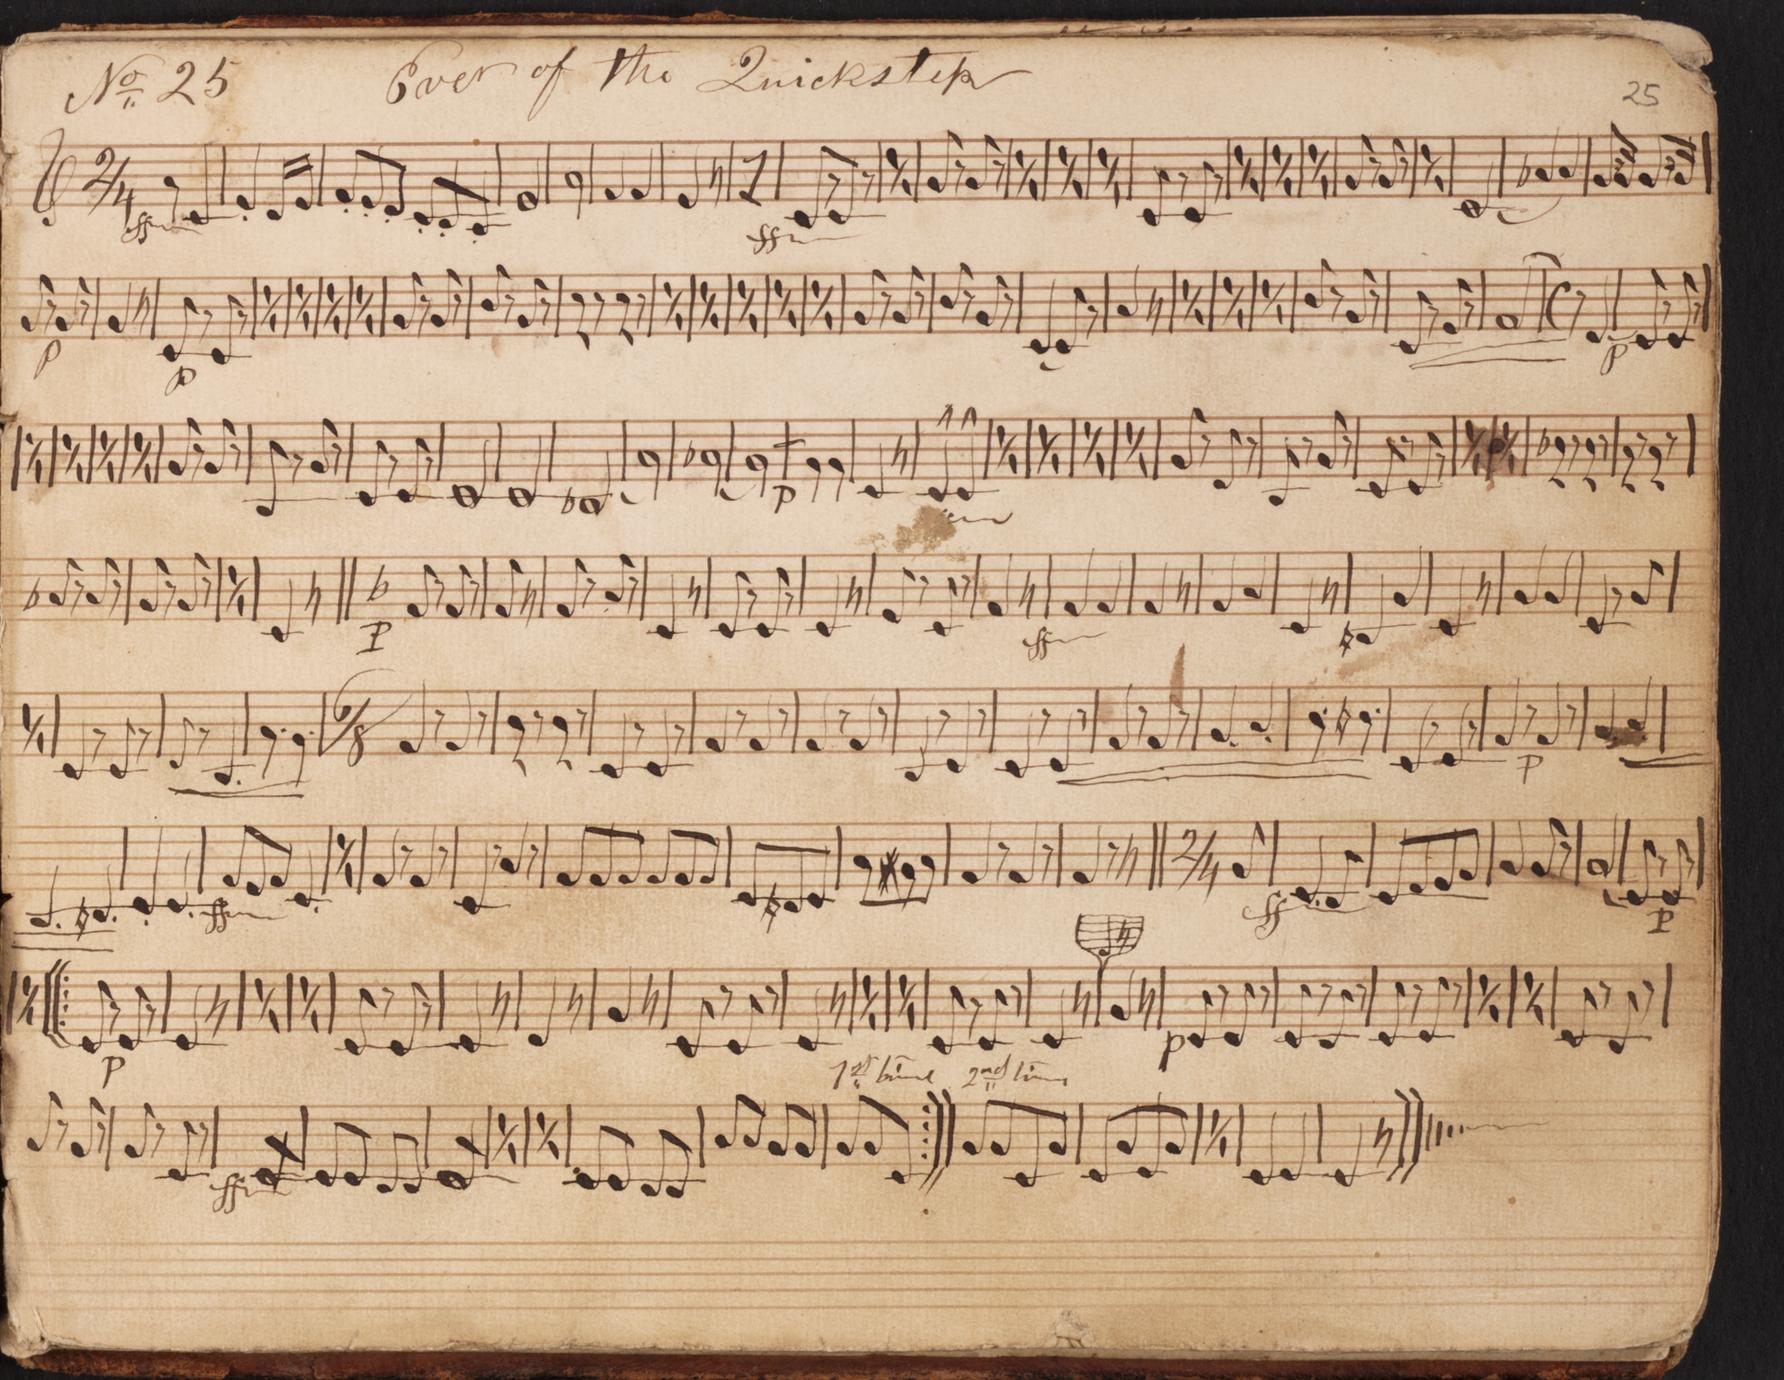 No. 25 Ever of the Quickstep
25
2/4
ff
ff
p
p
p
p
p
ff
6/8
p
ff
2/4
ff
p
p
p
1st time 2nd time
ff